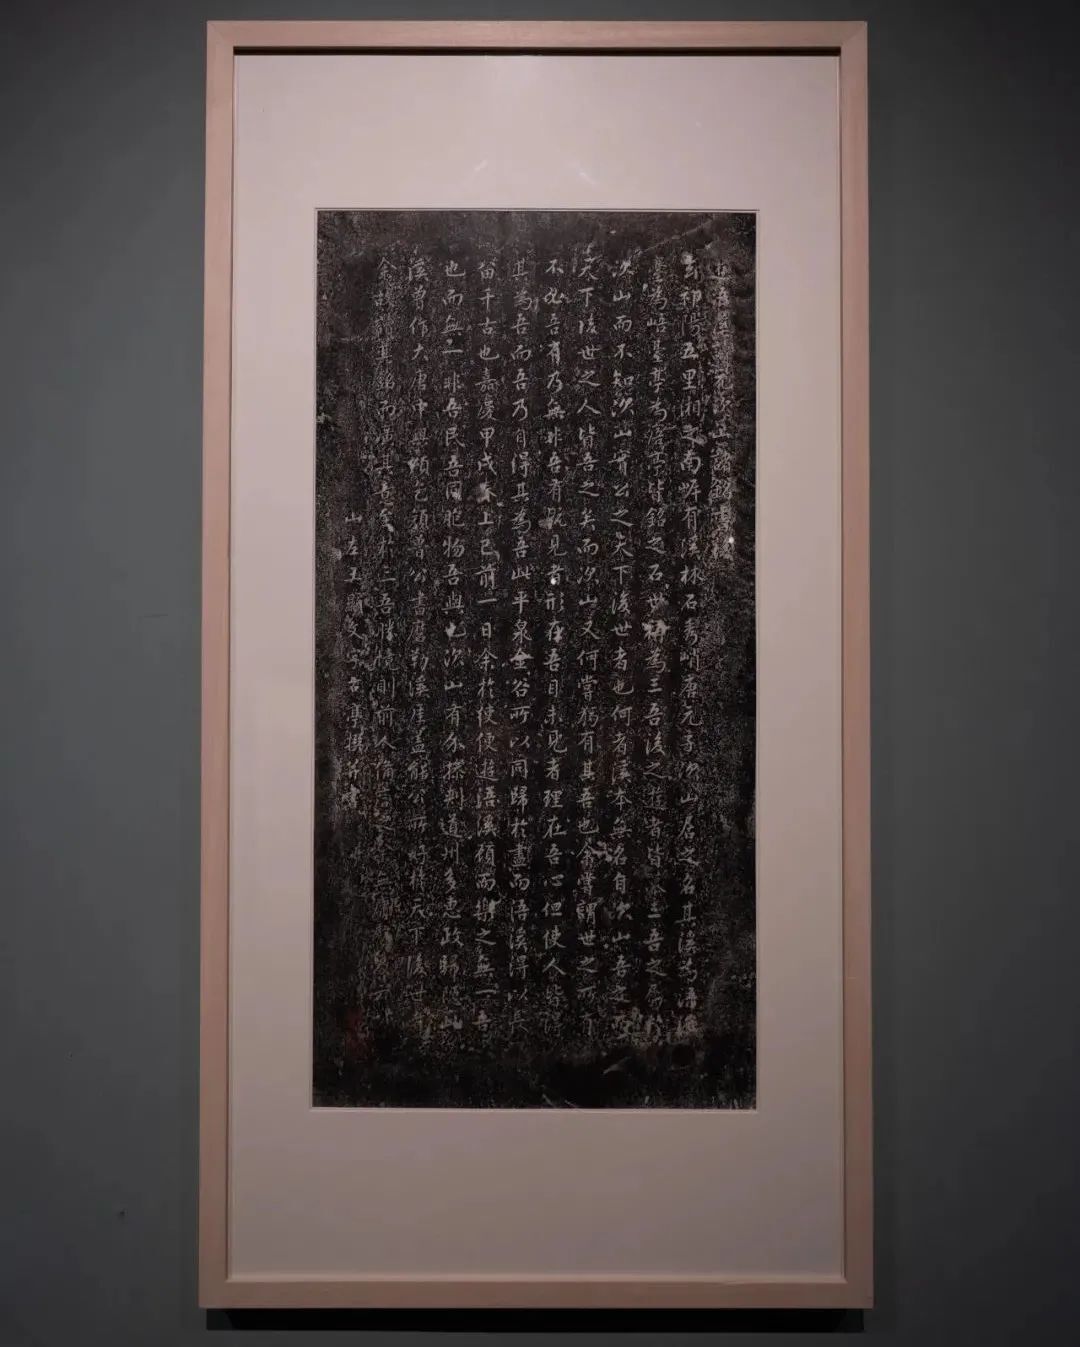 元次山銘
去祁陽五里湘之南岸有溪林石秀峭唐元子次山居之名其溪為浯溪
臺為峿臺亭為㾗亭皆銘之石世稱為三吾後之遊者皆三吾之
次山而不知次山實公之天下後世者也何者溪本無名自次山吾之
天下後世之人皆吾之矣而次山又何嘗獨有其吾也余嘗謂世之所有
不必吾有乃無非吾有既見者形在吾目未見者理在吾心但使人皆得
其為吾而吾乃自得其為吾此平泉金谷所以同歸於盡而浯溪得以長
留千古也嘉慶甲戌春上巳前一日余於使便遊浯溪顧而樂之無一吾
也而無一非吾民吾同胞物吾與也次山有知道州多惠政歸隱此
溪曾作大唐中興頌乞顏魯公書磨勒溪崖蓋能公所好於天下後世
余故其銘而其意至於三吾勝境則前人備
山左王古亭撰并書